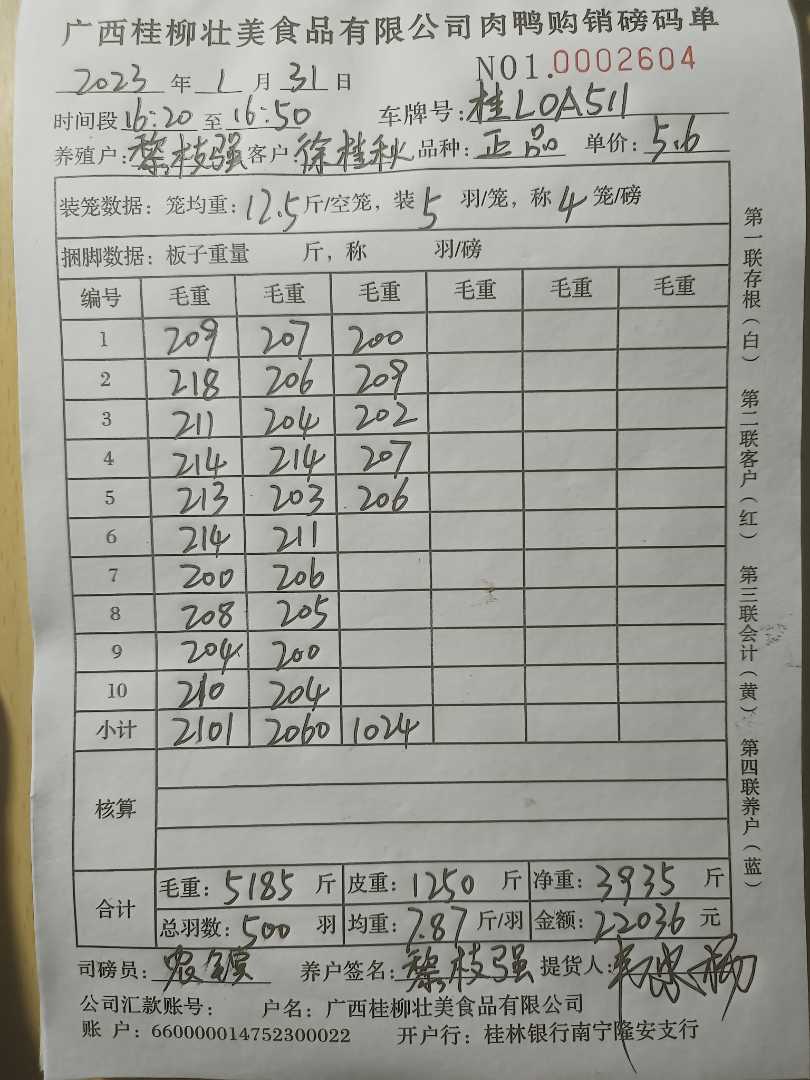 广西桂柳壮美食品有限公司肉鸭购销磅码单
2023 年 1 月 31 日 NO1.0002604
时间段 16:20 至 16:50 车牌号: 桂L0A511
养殖户: 黎枝强 客户 徐桂秋 品种: 正品 单价: 5.6
装笼数据: 笼均重: 12.5 斤/空笼, 装 5 羽/笼, 称 4 笼/磅
捆脚数据: 板子重量 斤, 称 羽/磅
编号 毛重 毛重 毛重 毛重 毛重 毛重
1 209 207 200
2 218 206 209
3 211 204 202
4 214 214 207
5 213 203 206
6 214 211
7 200 206
8 208 205
9 204 200
10 210 204
小计 2101 2060 1024
核算
合计
毛重: 5185 斤 皮重: 1250 斤 净重: 3935 斤
总羽数: 500 羽 均重: 7.87 斤/羽 金额: 22036 元
司磅员: 养户签名: 黎枝强 提货人:
公司汇款账号: 户名: 广西桂柳壮美食品有限公司
账 户: 660000014752300022 开户行: 桂林银行南宁隆安支行
第一联存根(白) 第二联客户(红) 第三联会计(黄) 第四联养户(蓝)